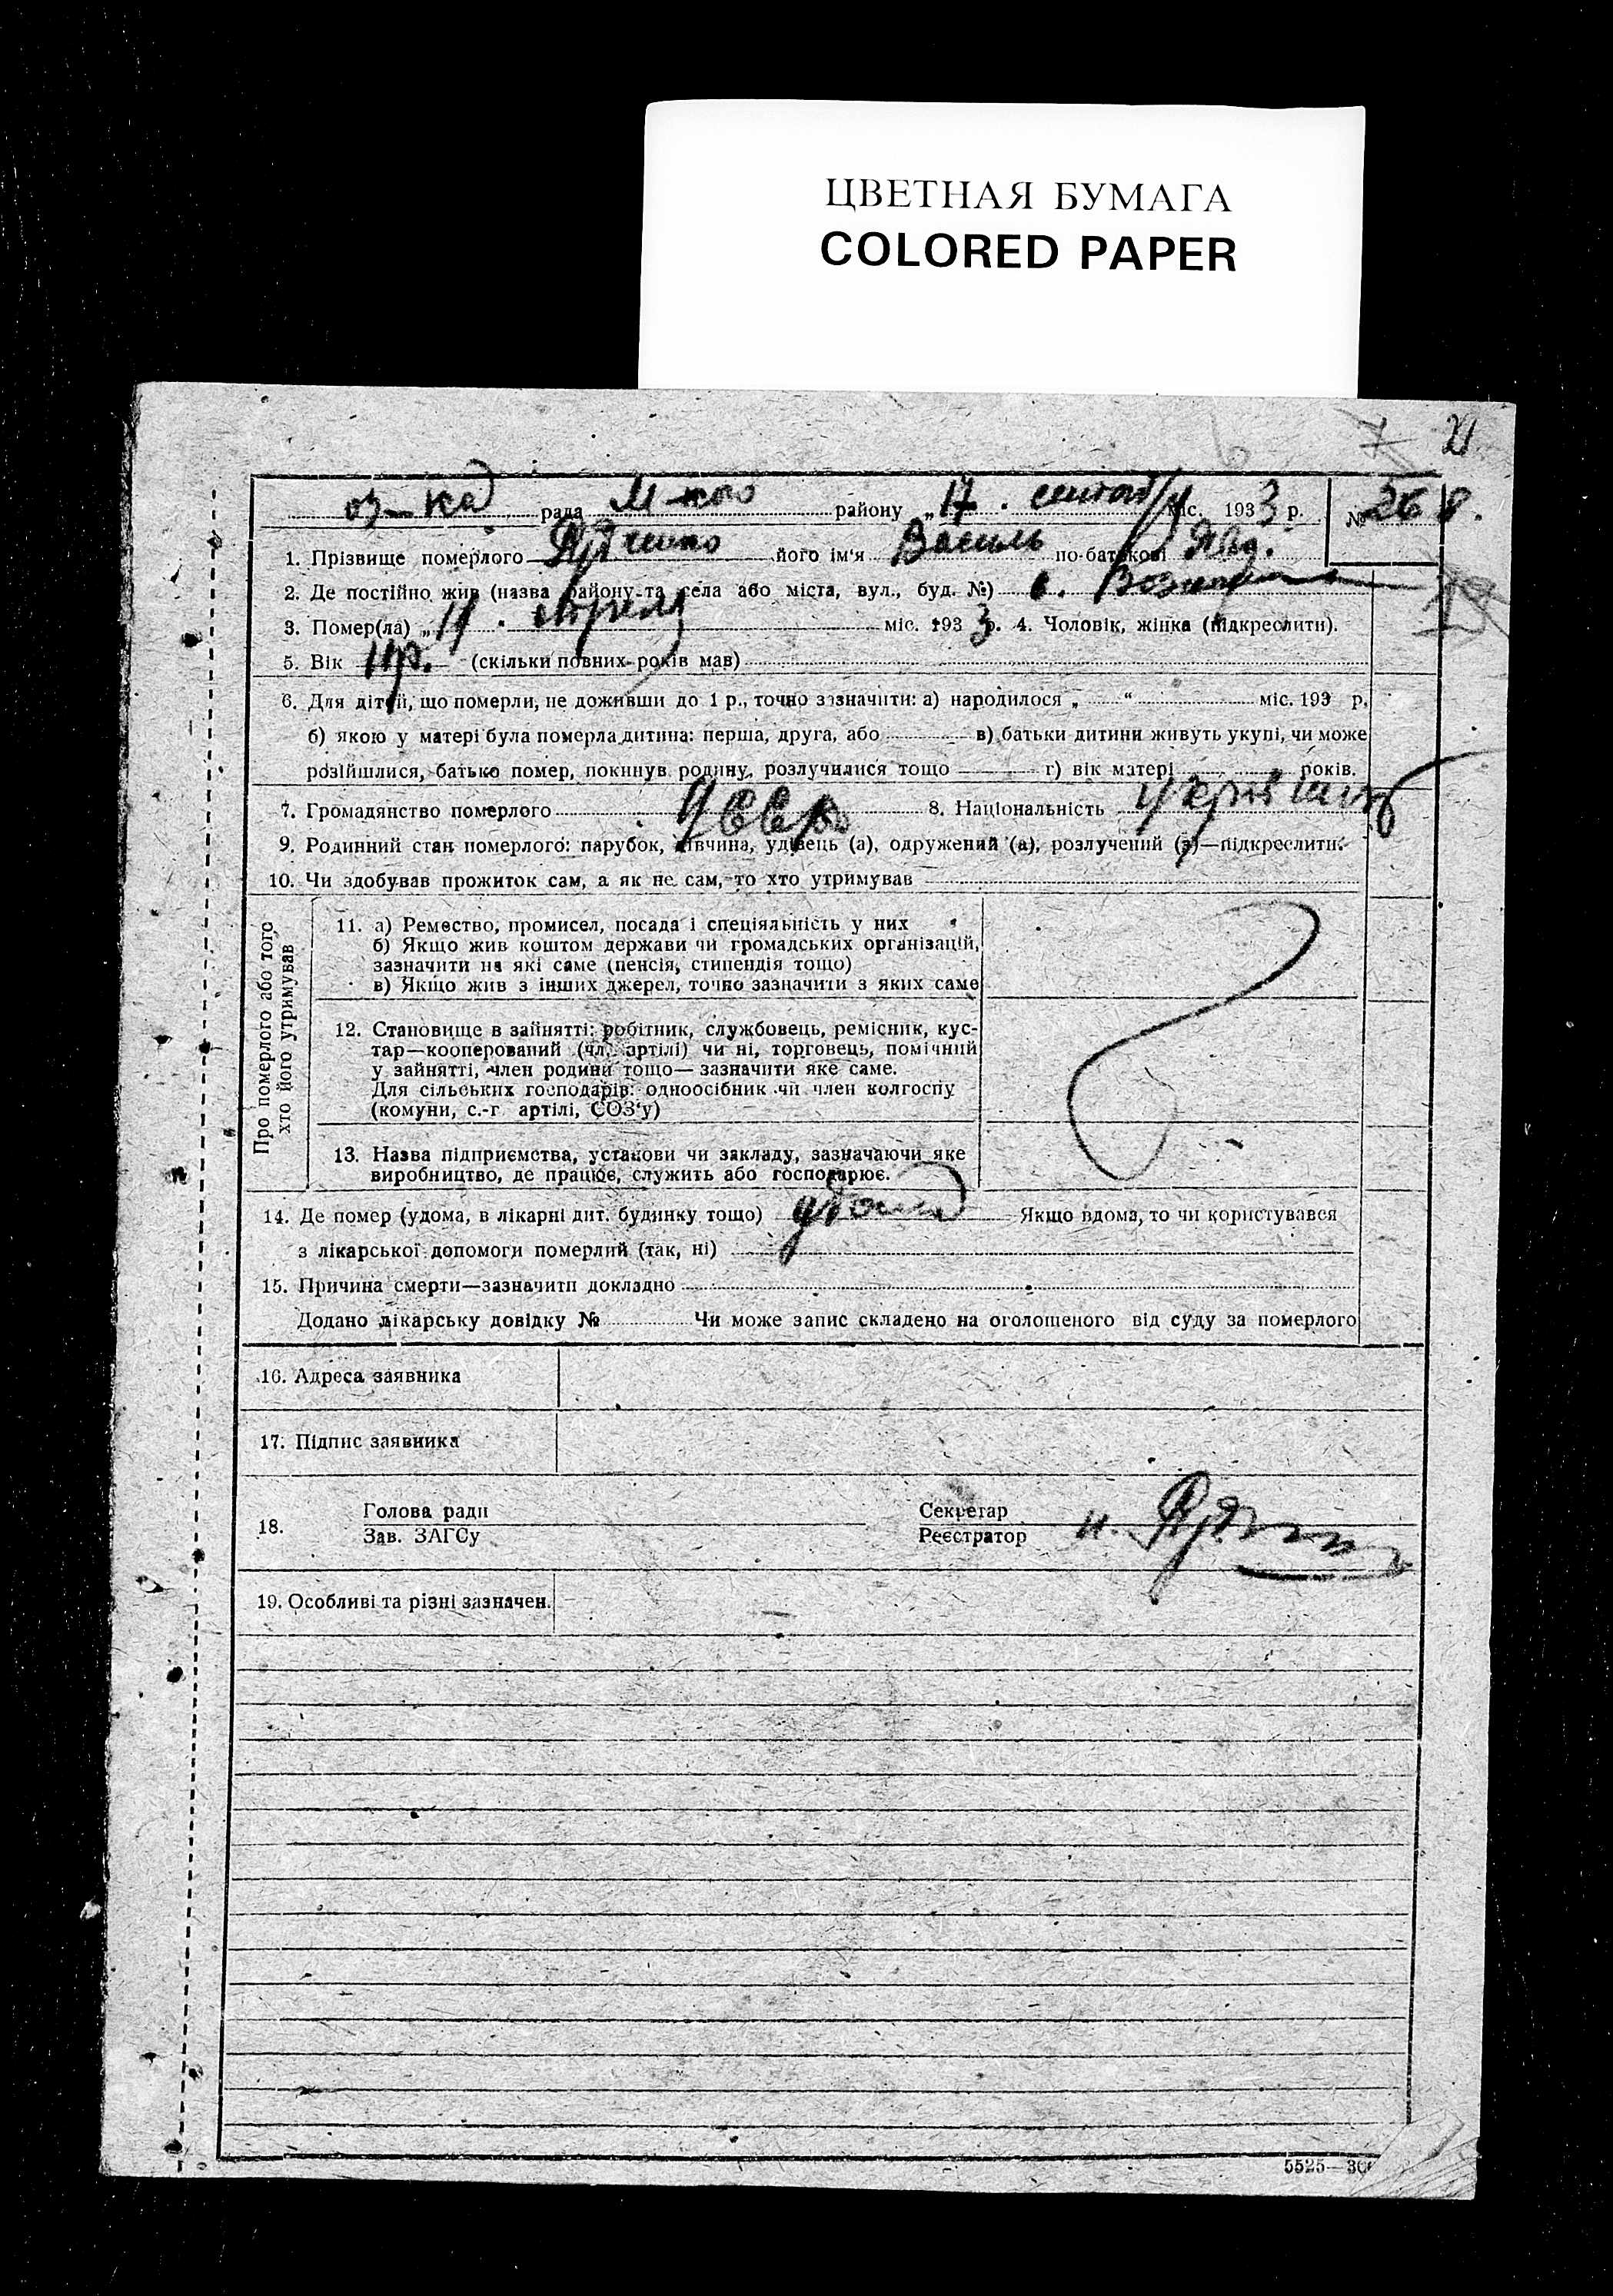 ЦВЕТНАЯ БУМАГА
COLORED PAPER
7 21
оз-ка рада М-кого району „17. сентебр міс. 1933 р. № 268.
1. Прізвище померлого його ім'я Василь по-батькові
2. Де постійно жив (назва району та села або міста, вул., буд. №) с.
3. Помер(ла) „ апреля міс. 1933 р. 4. Чоловік, жінка (підкреслити).
5. Вік (скільки повних років мав)
6. Для дітей, що померли, не доживши до 1 р., точно зазначити: а) народилося „ “ міс. 193 р.
б) якою у матері була померла дитина: перша, друга, або в) батьки дитини живуть укупі, чи може
розійшлися, батько помер, покинув родину, розлучилися тощо г) вік матері років.
7. Громадянство померлого УССР 8. Національність
9. Родинний стан померлого: парубок, дівчина, удівець (а), одружений (а), розлучений (а)—підкреслити.
10. Чи здобував прожиток сам, а як не сам, то хто утримував
Про померлого або того
хто його утримував
11. а) Ремество, промисел, посада і спеціяльність у них
б) Якщо жив коштом держави чи громадських організацій,
зазначити на які саме (пенсія, стипендія тощо)
в) Якщо жив з інших джерел, точно зазначити з яких саме
12. Становище в зайнятті: робітник, службовець, ремісник, кус-
тар—кооперований (чл. артілі) чи ні, торговець, помічний
у зайнятті, член родини тощо— зазначити яке саме.
Для сільських господарів: одноосібник чи член колгоспу
(комуни, с.-г артілі, СОЗ'у)
13. Назва підприємства, установи чи закладу, зазначаючи яке
виробництво, де працює, служить або господарює.
14. Де помер (удома, в лікарні дит. будинку тощо) удома Якщо вдома, то чи користувався
з лікарської допомоги померлий (так, ні)
15. Причина смерти—зазначити докладно
Додано лікарську довідку № Чи може запис складено на оголошеного від суду за померлого
16. Адреса заявника
17. Підпис заявника
18. Голова ради Секретар
Зав. ЗАГСу Реєстратор
19. Особливі та різні зазначен.
5525—30